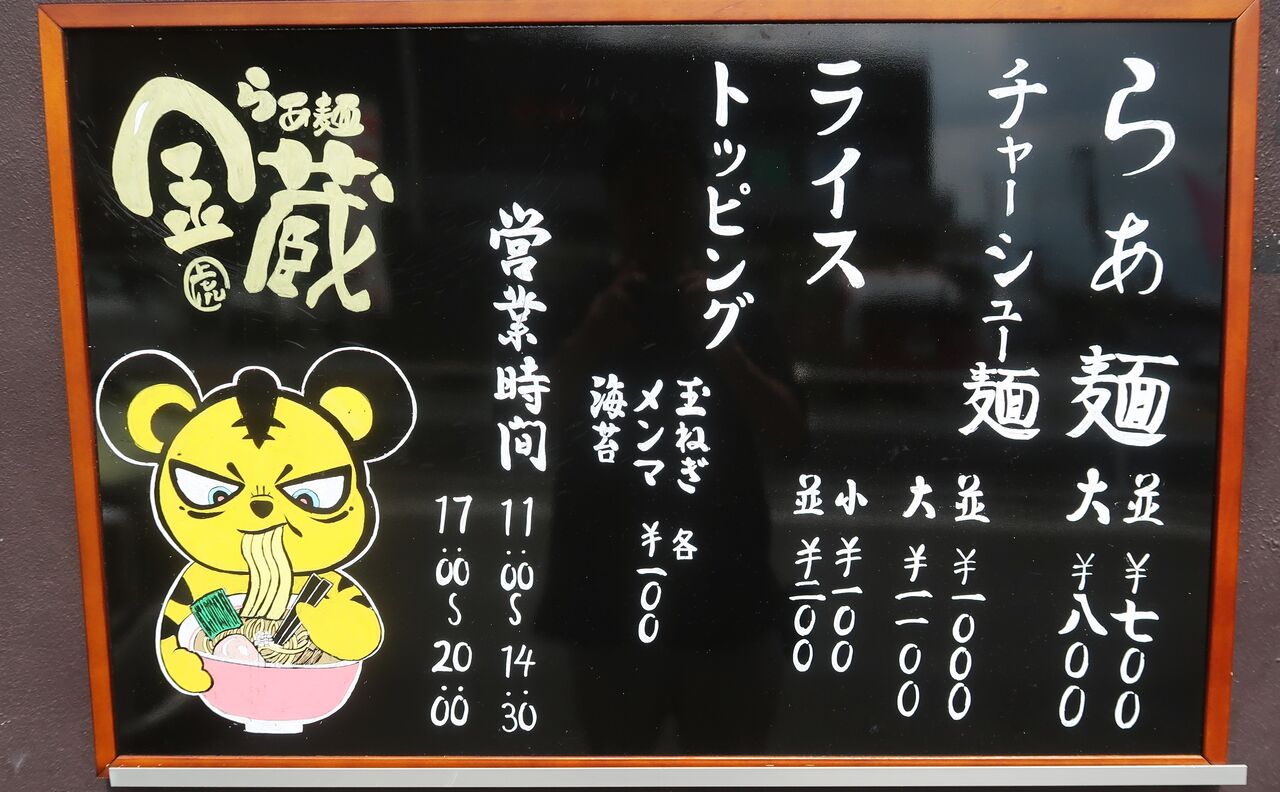 らぁ麺
並 ¥七〇〇
大 ¥八〇〇
チャーシュー麺
並 ¥一〇〇〇
大 ¥一一〇〇
ライス
小 ¥一〇〇
並 ¥二〇〇
トッピング
玉ねぎ 各
メンマ ¥一〇〇
海苔
営業時間
11:00〜14:30
17:00〜20:00
らぁ麺
金蔵
虎